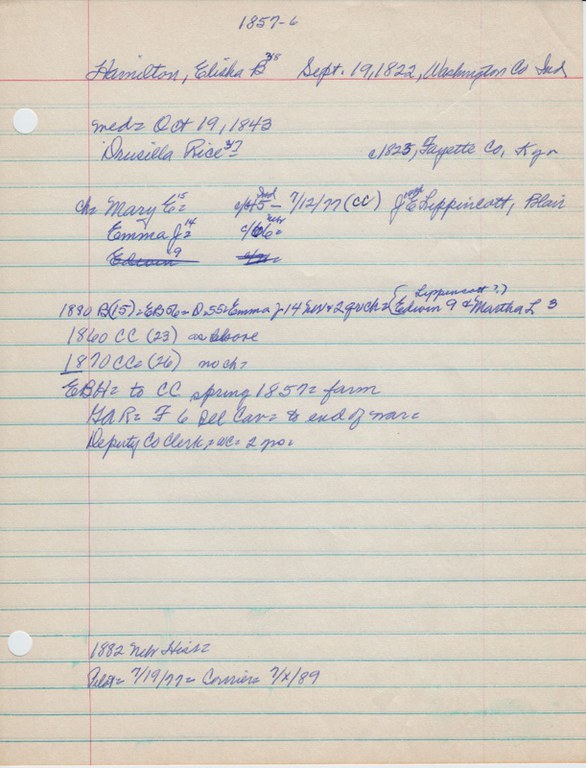 1857-6
Hamilton, Elisha B 38 Sept. 19, 1822, Washington Co Ind
med= Oct 19, 1843
Drucilla Rice 37= c1823, Fayette Co, Ky=
ch= Mary E 15= c/45 Ind - 7/12/77 (CC) J E Lippincott, Blair
Emma J 14= c/66 Nebr=
Edwin 9
1880 B(15)= EB 56= D 55= Emma J 14 Nebr & 2 gr ch= (Lippencott?) Edwin 9 & Martha L 3
1860 CC (23) as above
1870 CC= (26) no ch=
EBH= to CC spring 1857= farm
GAR= F 6 Del Cav= to end of war=
Deputy Co Clerk= 2
1882 Nebr Hist=
Pilot= 7/19/77= Courier= 7/x/89